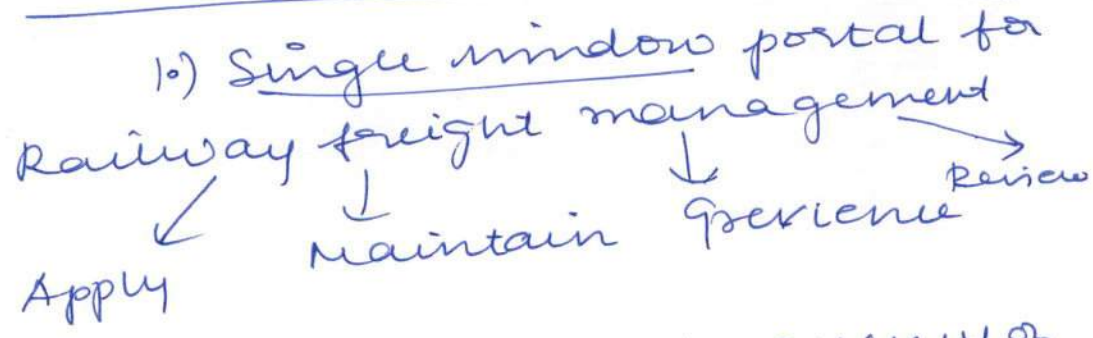 10) Single window portal for
Railway freight management
Review
Maintain Grevience
Apply